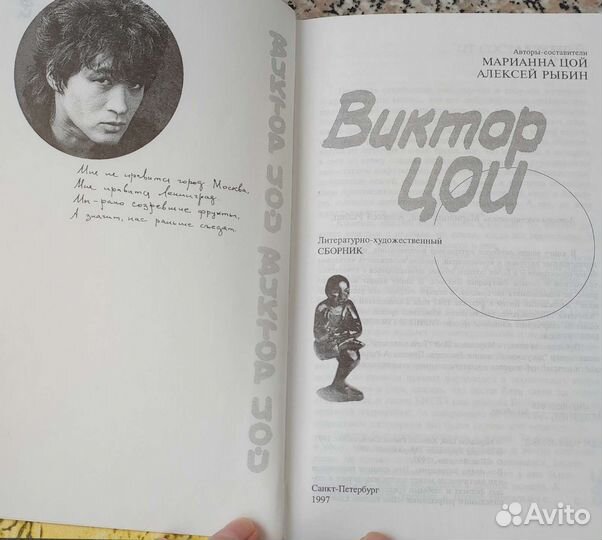 Мне не нравится город Москва,
Мне нравится Ленинград.
Мы-рано созревшие фрукты,
А значит, нас раньше съедят.
Виктор Цой Виктор Цой
Авторы-составители
МАРИАННА ЦОЙ
АЛЕКСЕЙ РЫБИН
Виктор
Цой
Литературно-художественный
СБОРНИК
Санкт-Петербург
1997
Avito